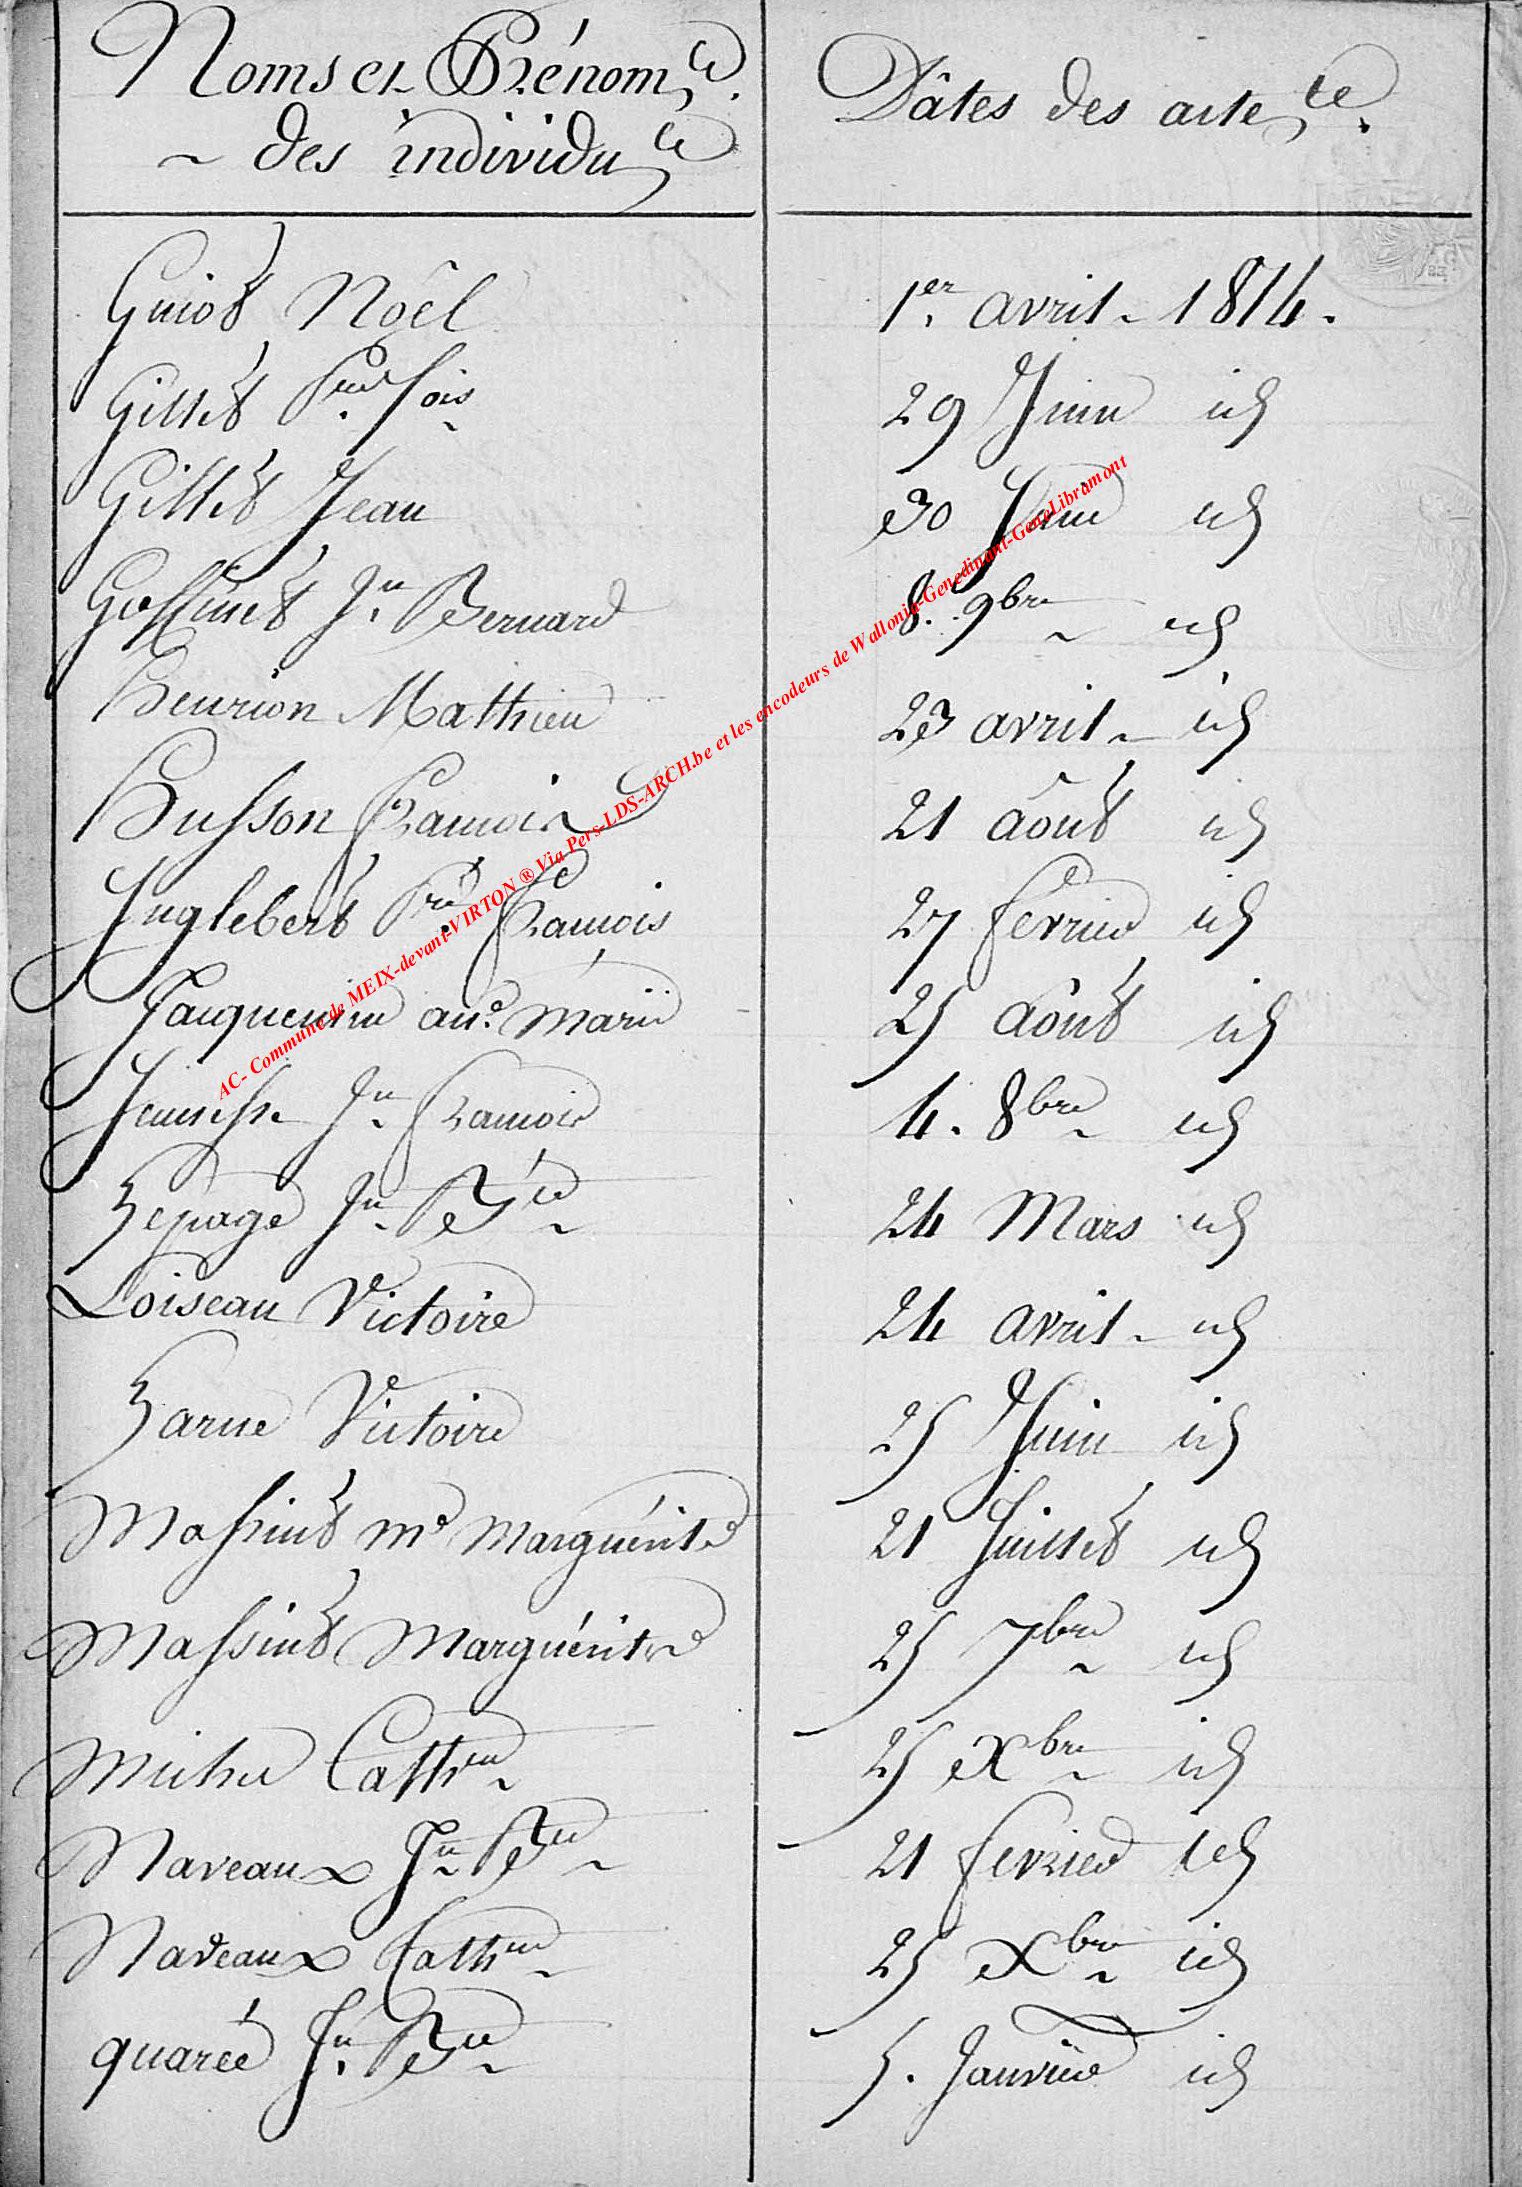 Noms et Prénoms
des individus
Dâtes des actes.
Guiot Noël 1er avril 1814.
Gillet Pre. fois 29 Juin id
Gillet Jean 30 Juin id
Goffinet Jn. Bernard 8. 9bre id
Henrion Mathieu 23 avril id
Husson François 21 août id
Inglebert Pre. François 27 fevrier id
Jacquemin ane. Marie 25 août id
Jeunesse Jn François 4. 8bre id
Lepage Jn Bte 24 Mars id
Loiseau Victoire 24 avril id
Larue Victoire 25 Juin id
Massinet Me Marguérite 21 Juillet id
Massinet Marguérite 25 7bre id
Cathne 25 Xbre id
Naveaux Jn Bte 21 fevrier id
Naveaux Cathne 25 Xbre id
quarée Jn. Bte 5. Janvier id
AC- Commune de MEIX-devant-VIRTON ® Via Pers-LDS-ARCH.be et les encodeurs de Wallonia-Genedinant-GeneLibramont